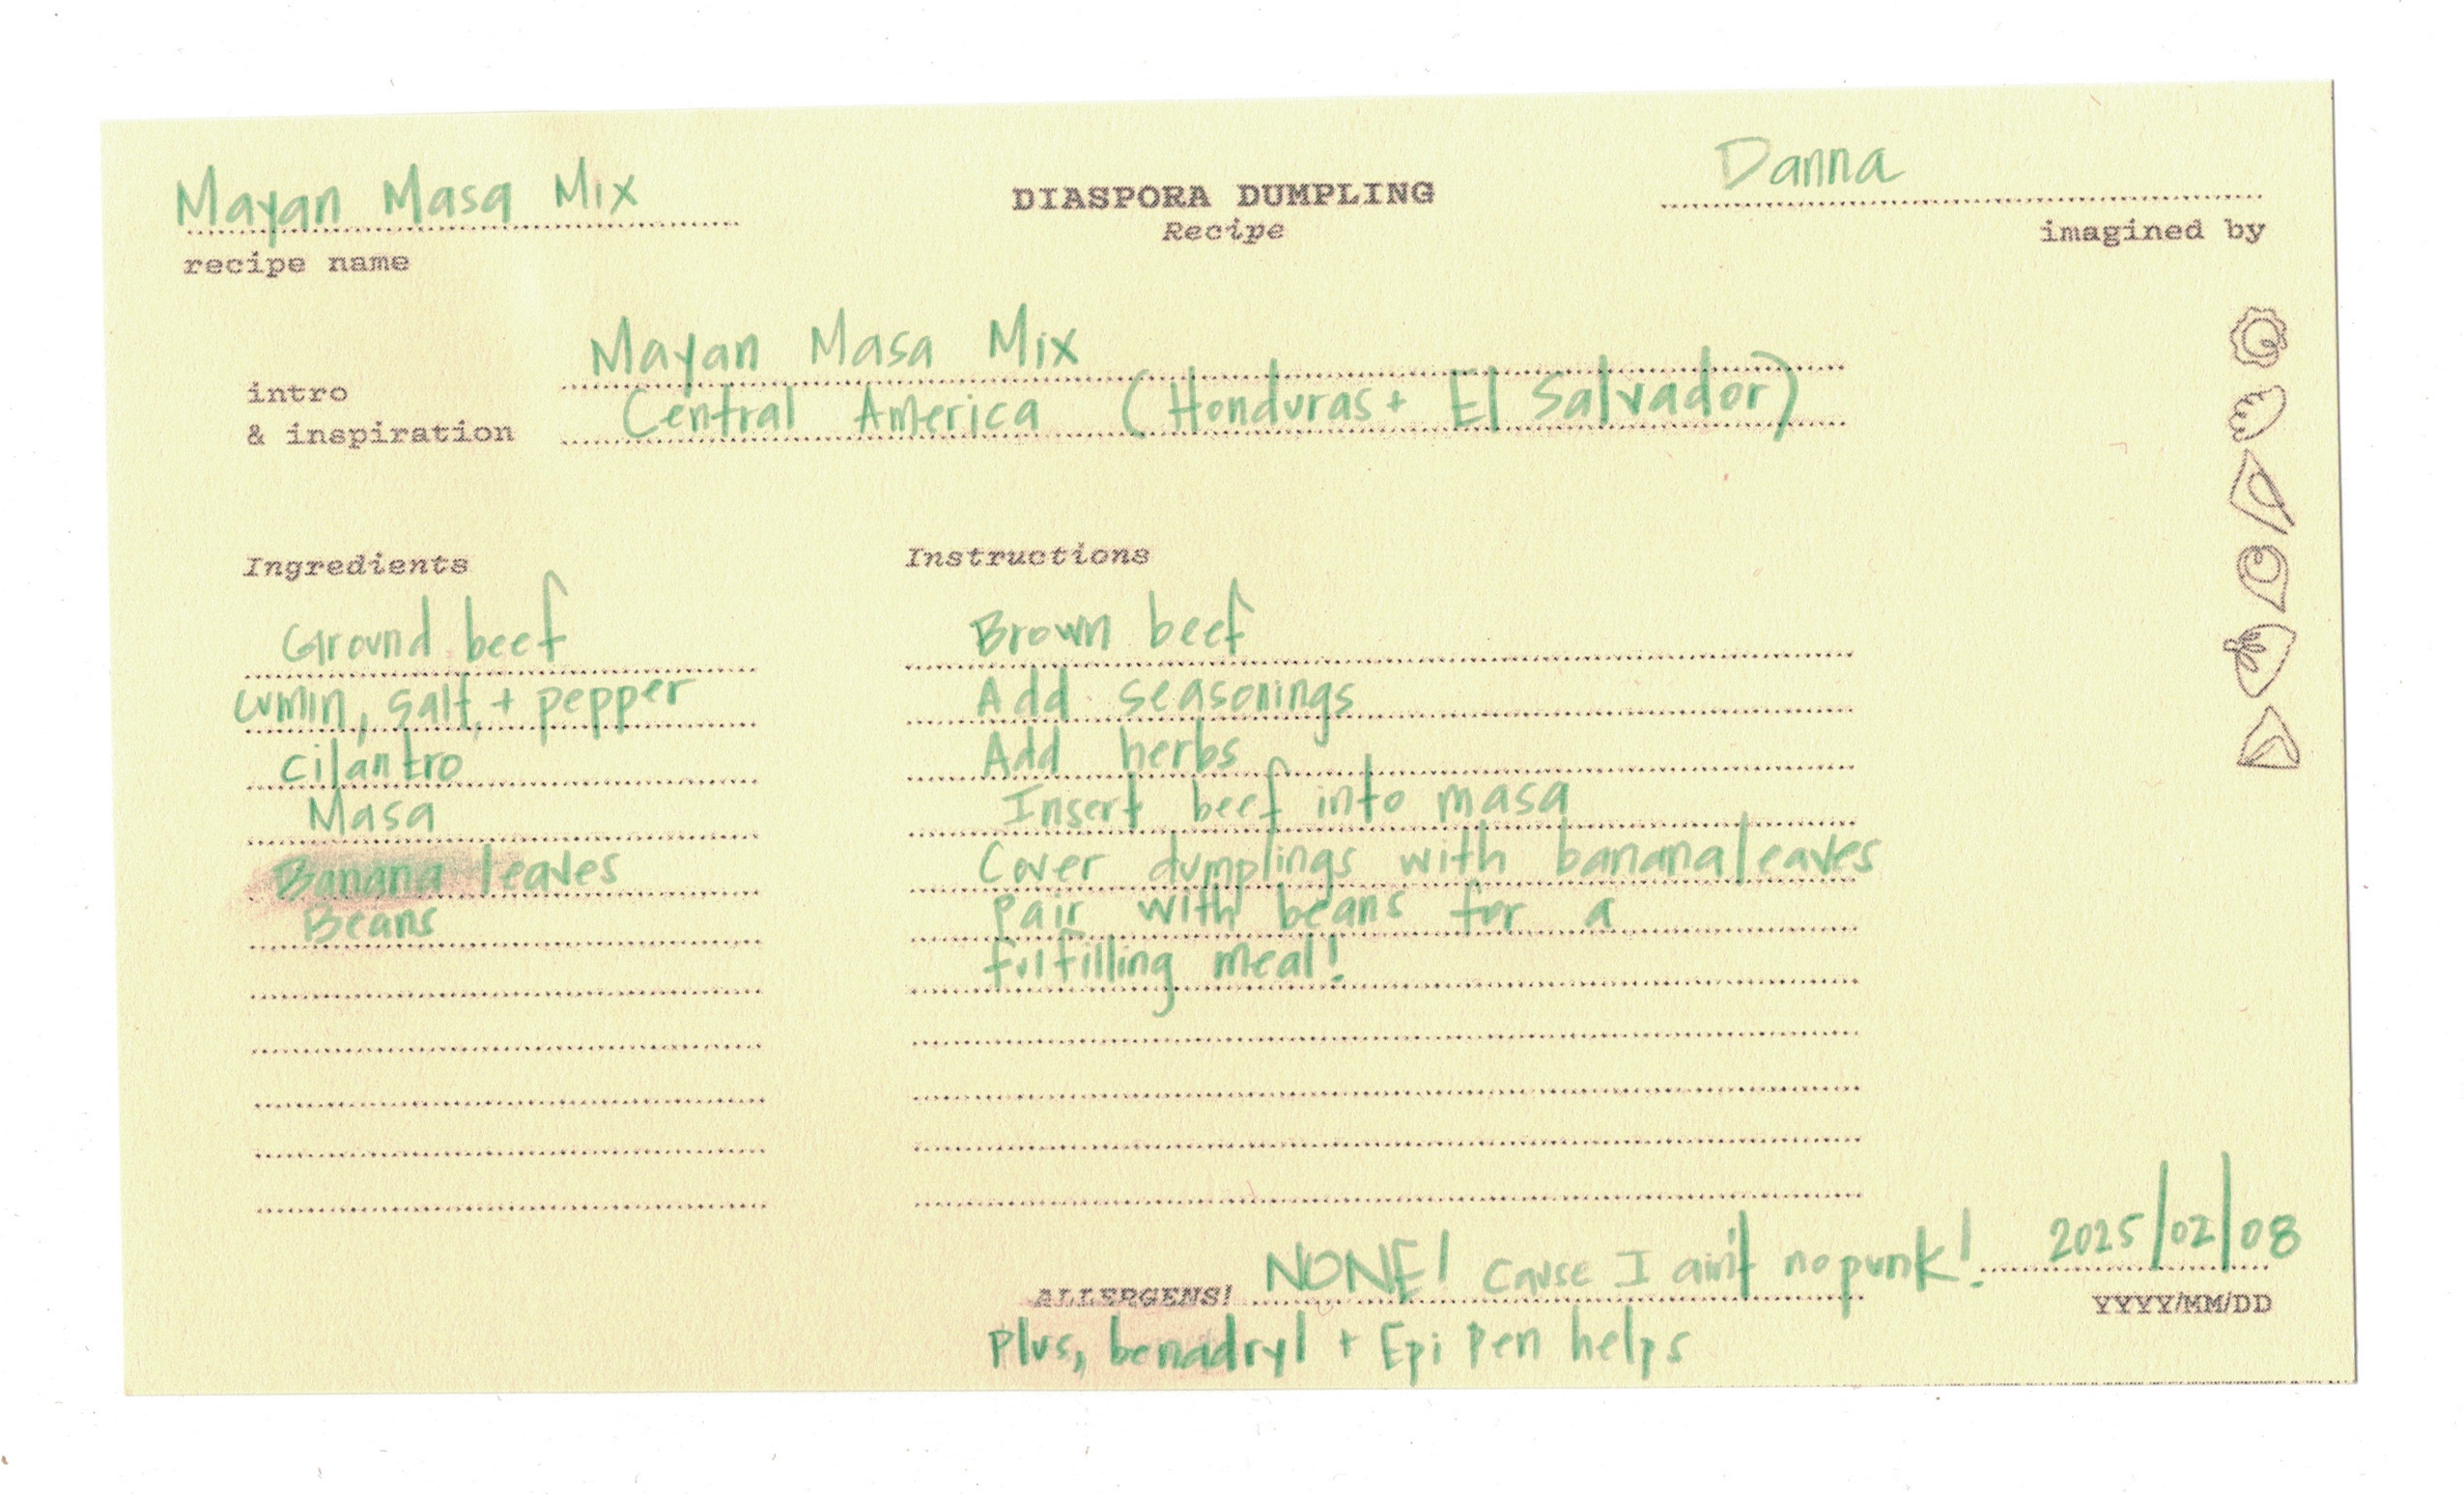 Mayan Masa Mix
recipe name
DIASPORA DUMPLING
Recipe
Danna
imagined by
intro
& inspiration
Mayan Masa Mix
Central America (Honduras + El Salvador)
Ingredients
Ground beef
cumin, salt, + pepper
cilantro
Masa
Banana leaves
Beans
Instructions
Brown beef
Add seasonings
Add herbs
Insert beef into masa
Cover dumplings with banana leaves
Pair with beans for a
fulfilling meal!
ALLERGENS! NONE! Cause I ain't no punk!
Plus, benadryl + Epi Pen helps
2025/02/08
YYYY/MM/DD